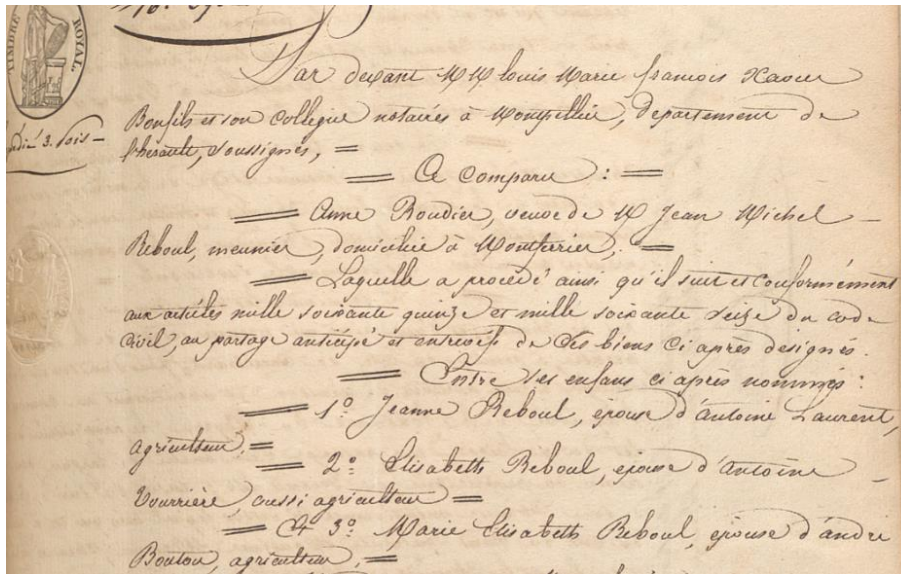 TIMBRE ROYAL.
Par devant M M. louis Marie françois Xavier
Bonfils et son collègue notaires à Montpellier, département de
l'herault, soussignés, =
= A comparu : =
= Anne Roudier, veuve de M Jean Michel -
Reboul, meunier, domiciliée à Montferrier; =
= Laquelle a procédé ainsi qu'il suit et conformément
aux articles mille soixante quinze et mille soixante seize du code
civil, au partage anticipé et entrevifs de ses biens ci après désignés.
= Entre ses enfans ci après nommés :
= 1º Jeanne Reboul, épouse d'antoine Laurent,
agriculteur, =
= 2º Elisabeth Reboul, épouse d'antoine -
Vourrière, aussi agriculteur =
= Et 3º Marie Elisabeth Reboul, épouse d'andré
Bouton, agriculteur, =